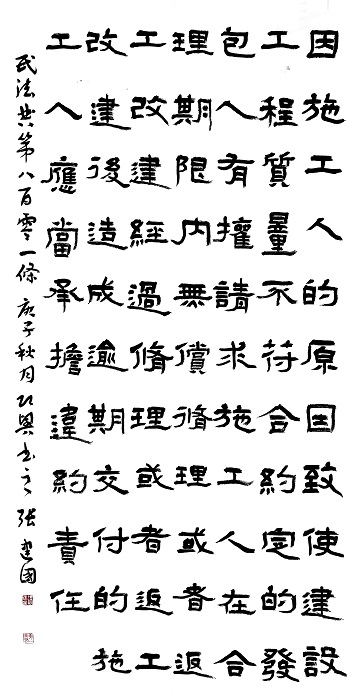 因施工人的原因致使建設
工程質量不符合約定的發
包人有權請求施工人在合
理期限内無償脩理或者返
工改建經過脩理或者返工
改建後造成逾期交付的施
工人應當承擔違約責任
民法典第八百零一條 庚子秋月 興書之 張建國